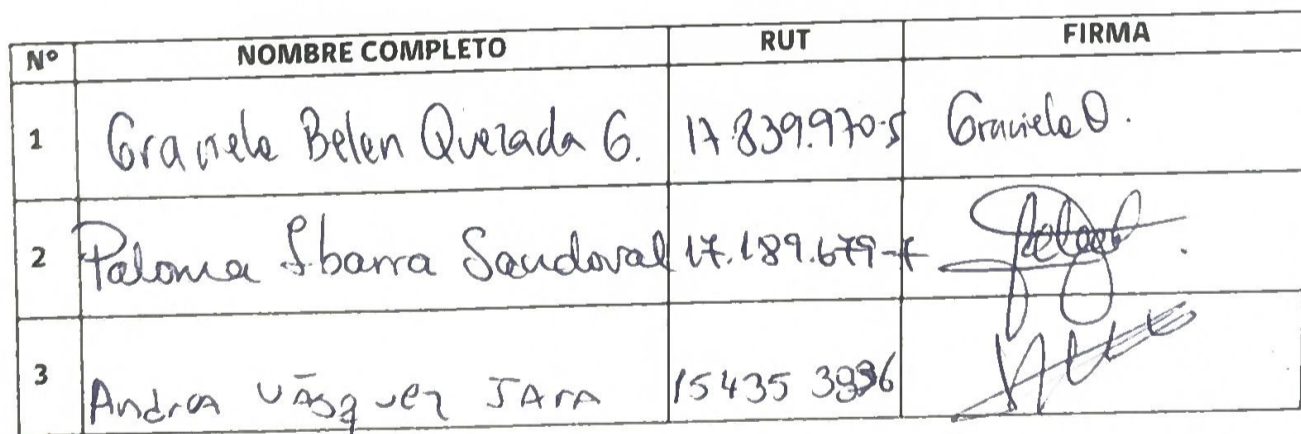 Nº NOMBRE COMPLETO RUT FIRMA
1 Graciela Belen Quezada G. 17.839.970-5 Graciela Q.
2 Paloma Ibarra Sandoval 17.189.679-7
3 Andrea Vásquez JARA 15435